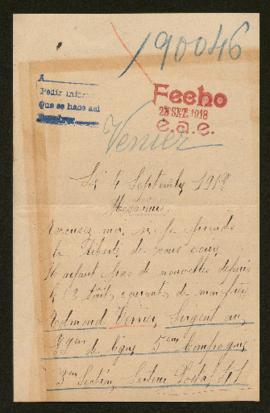 190046
A
Pedir infor
Que se hace así
Fecho
23 SET. 1918
e.a.e.
Vernier
Le 4 Septembre 1918
Madame
Excusez moi, si je prends
la liberté de vous
N'ayant pas de nouvelles depuis
le 3 Août courant de mon
Edmond Vernier, Sergent au
de ligne 5em Compagnie
3em Section, Secteur Postal